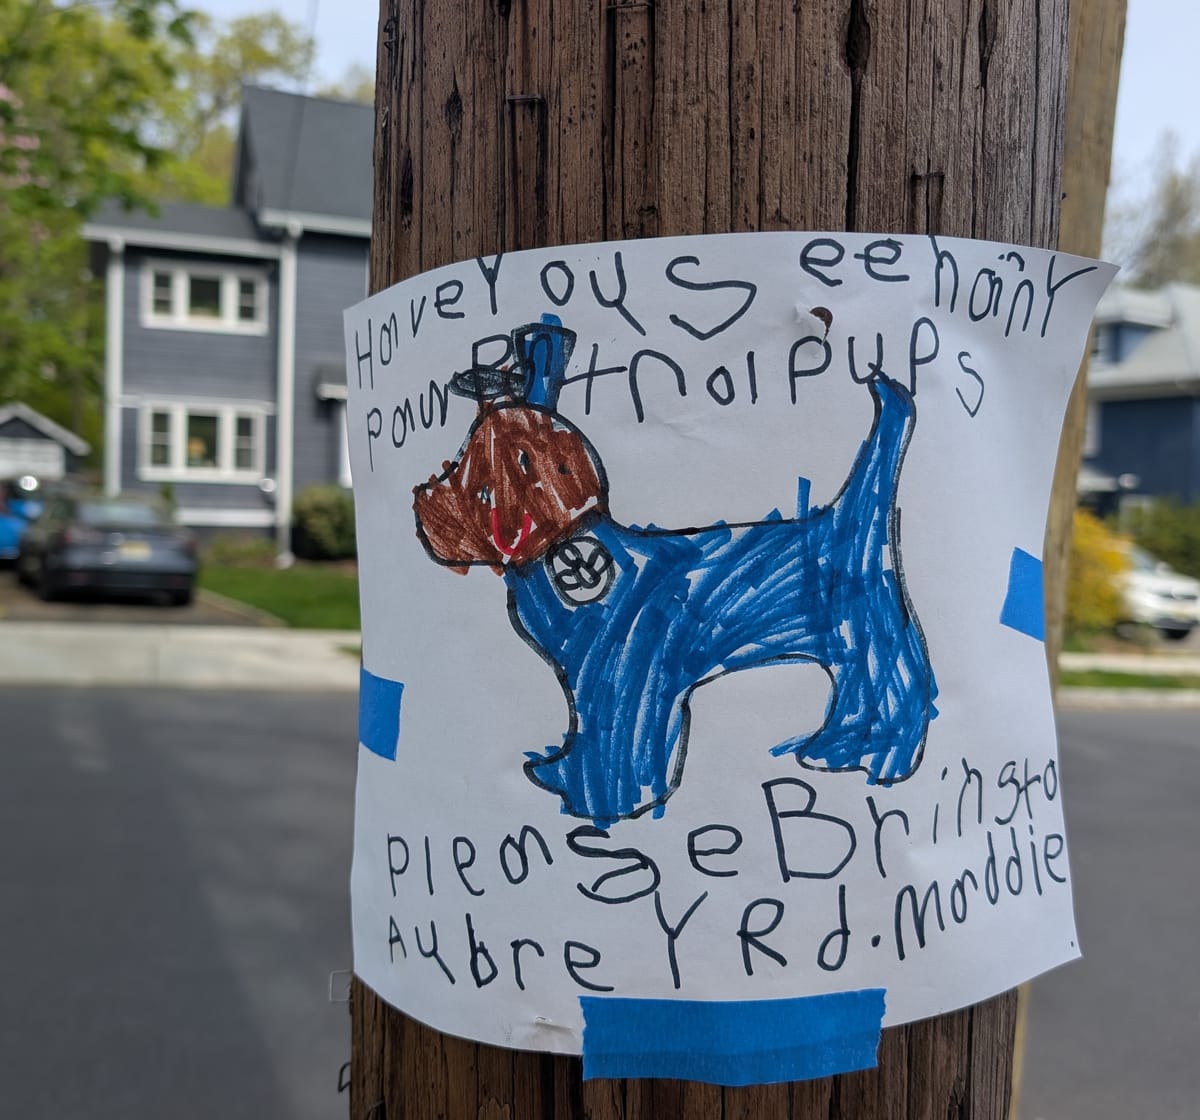 Have You See hany
paw Patrol pups
please Bring to
Aubrey Rd. Maddie